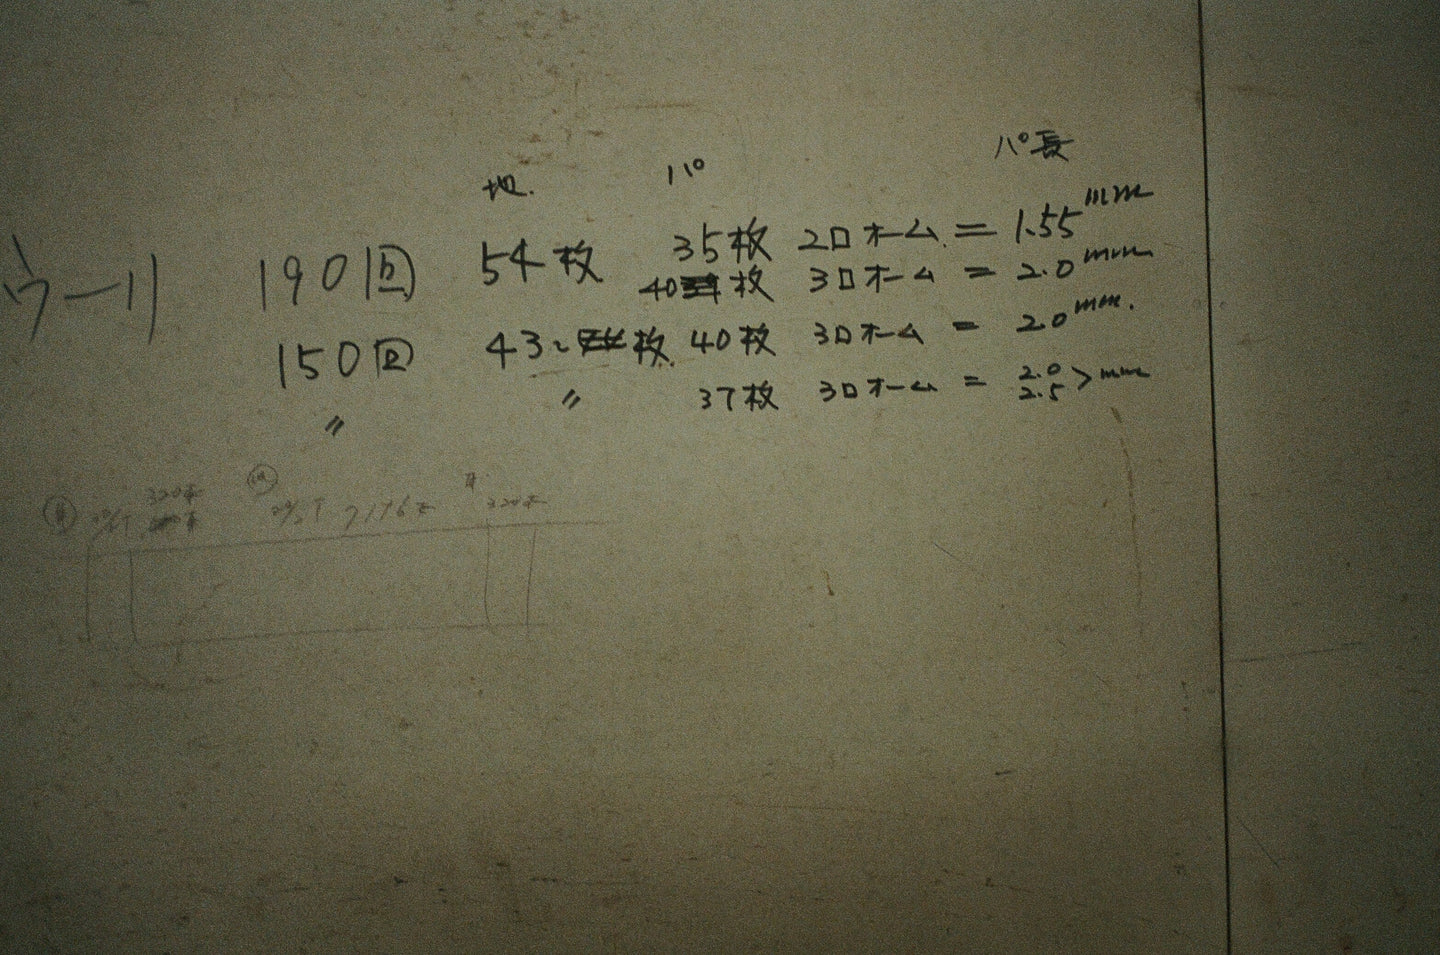 地. パ パ長
ウール 190回 54枚 35枚 2口ホーム. = 1.55mm
40枚 3口ホーム = 2.0mm
150回 43枚 40枚 3口ホーム = 2.0mm.
〃 〃 37枚 3口ホーム = 2.0 2.5 > mm
320本 地 耳
7176本 320本